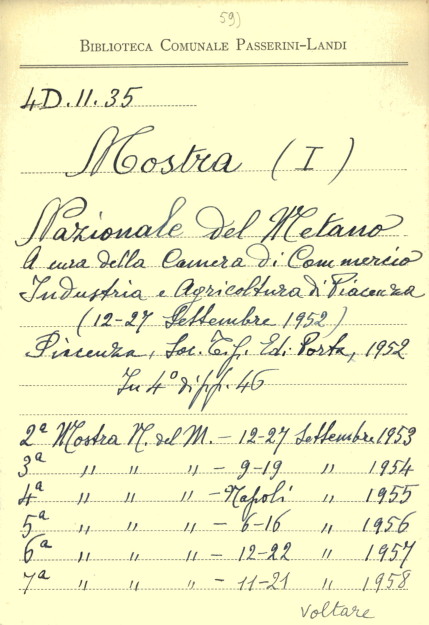 59)
BIBLIOTECA COMUNALE PASSERINI-LANDI
4D.II.35
Mostra (I)
Nazionale del Metano
A cura della Camera di Commercio
Industria e Agricoltura di Piacenza
(12-27 Settembre 1952)
Piacenza, Soc. Tip. Ed. Porta, 1952
In 4° di pp. 46
2ª Mostra N. del M. - 12-27 Settembre 1953
3ª " " " - 9-19 " 1954
4ª " " " - Napoli " 1955
5ª " " " - 6-16 " 1956
6ª " " " - 12-22 " 1957
7ª " " " - 11-21 " 1958
voltare